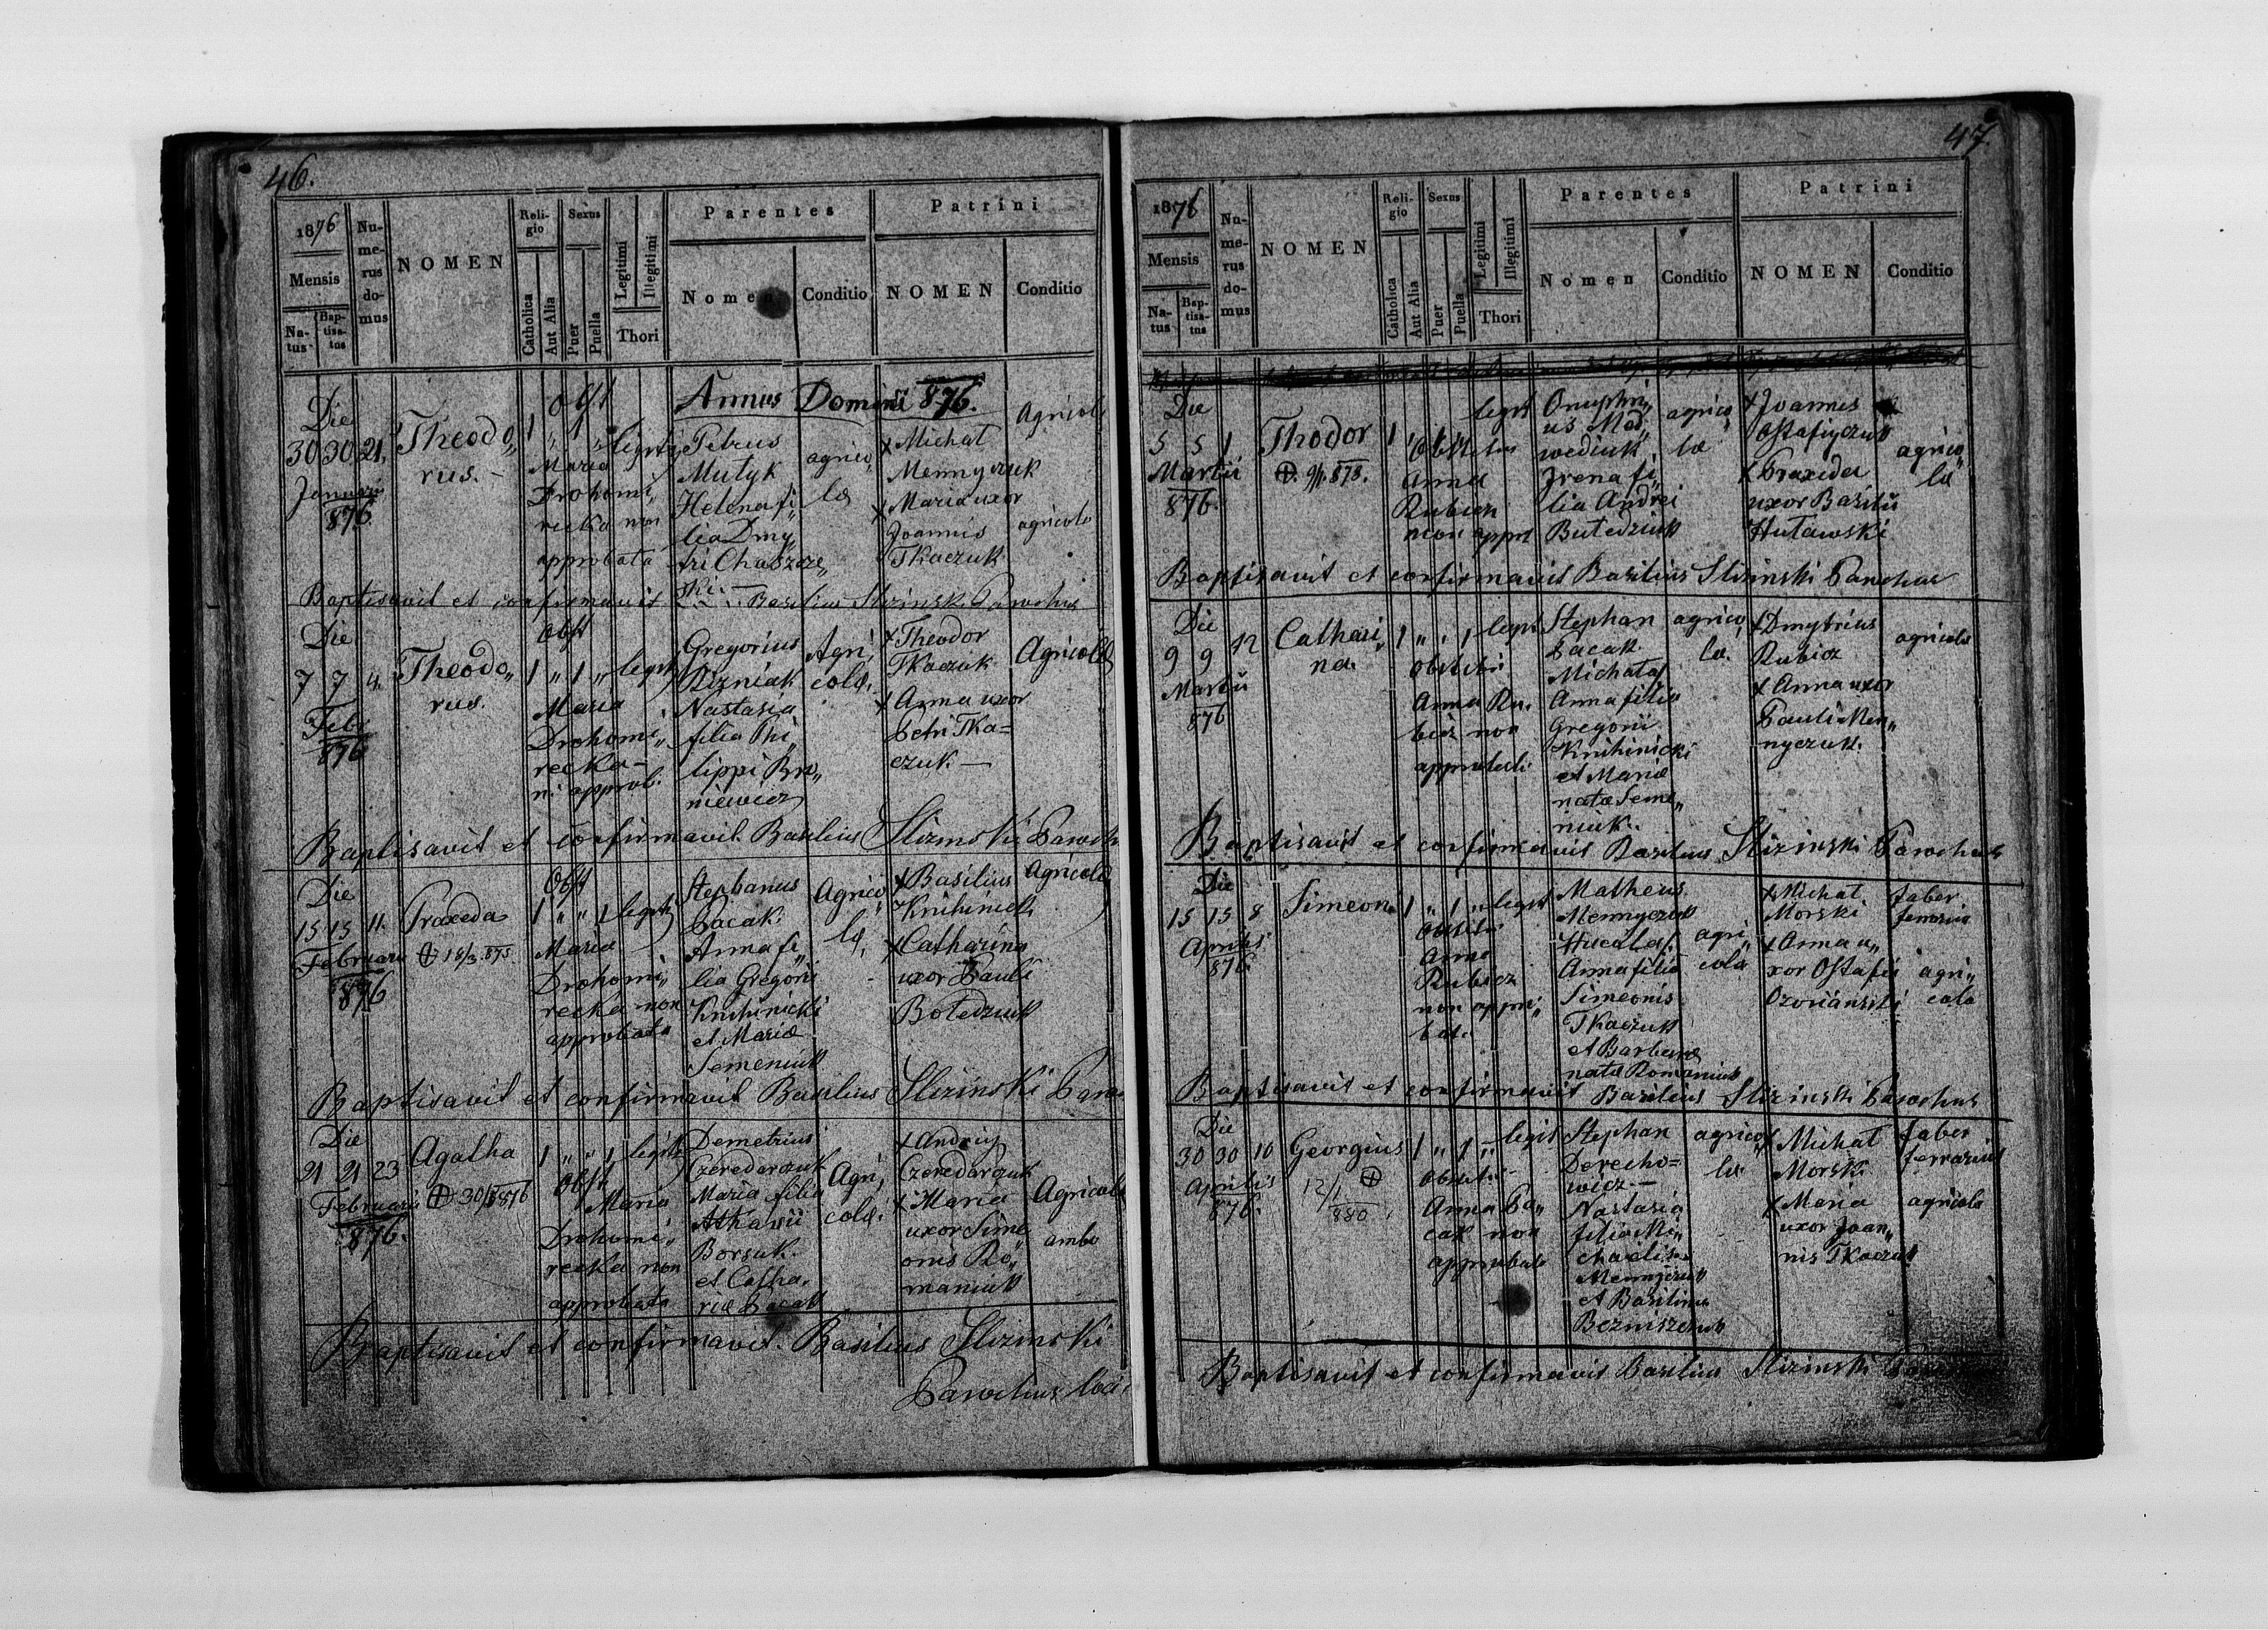 46.
1876
Mensis
Na-
tus
Bap-
tisa-
tus
Nu-
me-
rus
do-
mus
NOMEN
Reli-
gio
Catholica
Aut Alia
Sexus
Puer
Puella
Legitimi
Illegitimi
Thori
Parentes
Nomen
Conditio
Patrini
NOMEN
Conditio
Annus Domini 876.
Die
30 30 21.
Januarii
876
Theodo„
rus. –
Obst
1 „ 1 „
Maria
Drohomi„
recka non
approbata
Petrus
Mutyk
Helena fi„
lia Dmy
tri Chaszcze„
ski. —
agrico„
lae
x Michał
Mennyczuk
x Maria uxor
Joannis
Tkaczuk
Agricola
agricola
Baptisavit et confirmavit Basilius Slizinski Parochus
Die
7 7 4.
Febr
876
Theodo„
rus.
Obst
1 „ 1 „ legit
Maria
Drohomi„
recka –
n. approb.
Gregorius
Rizniak
Nastasia
filia Phi„
lippi Bro„
niewicz
Agri„
colae.
x Theodor
Tkaczuk
x Anna uxor
Petri Tka=
czuk. —
Agricolae
Baptisavit et confirmavit Basilius Slizinski Paroch
Die
15 15 11.
Februarii
876
Praxeda
⊕ 18/3 875
Obst
1 „ „ 1 legit
Maria
Drohomi„
recka non
approbata
Stephanus
Pacak.
Anna fi„
lia Gregorii
Knihinicki
et Mariae
Semeniuk
Agrico„
lae,
x Basilius
Knihinicki
x Catharina
uxor Pauli
Boledziuk
Agricolae
Baptisavit et confirmavit Basilius Slizinski Paro
Die
21 21 23
Februarii
876.
Agatha
1 „ „ 1 legit
Obst
Maria
Drohomi„
recka non
approbata
Demetrius
Czeredarczuk
Maria filia
Athanii
Borsuk.
et Catha„
riae Pacak
Agri„
colae.
x Andrij
Czeredarczuk
x Maria
uxor Sime
onis Ro„
maniuk
Agricola
ambo
Baptisavit et confirmavit. Basilius Slizinski
Parochus loci.
47.
1876
Mensis
Na-
tus
Bap-
tisa-
tus
Nu-
me-
rus
do-
mus
NOMEN
Reli-
gio
Catholica
Aut Alia
Sexus
Puer
Puella
Legitimi
Illegitimi
Thori
Parentes
Nomen
Conditio
Patrini
NOMEN
Conditio
Die
5 5 1
Martii
876.
Thodor
⊕. 9/1. 878.
legit
Anna
Rubicz
non appro
Onuphri„
us Med„
wediuk,
Irena fi„
lia Andrei
Buledziuk
agrico„
lae
x Joannes
Ostafijczuk
x Praxeda
uxor Basilii
Hutawski
agrico„
lae
Baptisavit et confirmavit Basilius Slizinski Parochus
Die
9 9 12
Martii
876
Cathari„
na.
1 „ „ 1 legit
Obstetri
Anna Ru„
bicz non
approbata
Stephan
Pacak
Michała
Anna filia
Gregorii
Knihinicki
et Mariae
natae Seme„
niuk.
agrico„
lae.
x Dmytrius
Rubicz
x Anna uxor
Pauli Men„
nyczuk.
agricola
Baptisavit et confirmavit Basilius Slizinski Parochus
Die
15 15 8
Aprilis
876.
Simeon
1 „ 1 „ legit
Anna
Rubicz
non appro„
bat.
Matheus
Mennyczuk
Anna filia
Simeonis
Tkaczuk
et Barbarae
natae Romaniuk
agri„
colae
x Michał
Morski
x Anna u„
xor Ostafii
faber
ferrarius
agri„
cola
Baptisavit et confirmavit Basilius Slizinski Parochus
Die
30 30 10
Aprilis
876.
Georgius
12/1 ⊕
880
1 „ 1 „ legit
Anna Pa„
cak non
approbata
Stephan
Derecho=
wicz. —
Nastasia
filia Mi„
chaelis
Mennyczuk
et Basilina
agrico„
lae
x Michał
Morski
x Maria
uxor Joan„
nis Tkaczuk
faber
ferrarius
agricola
Baptisavit et confirmavit Basilius Slizinski